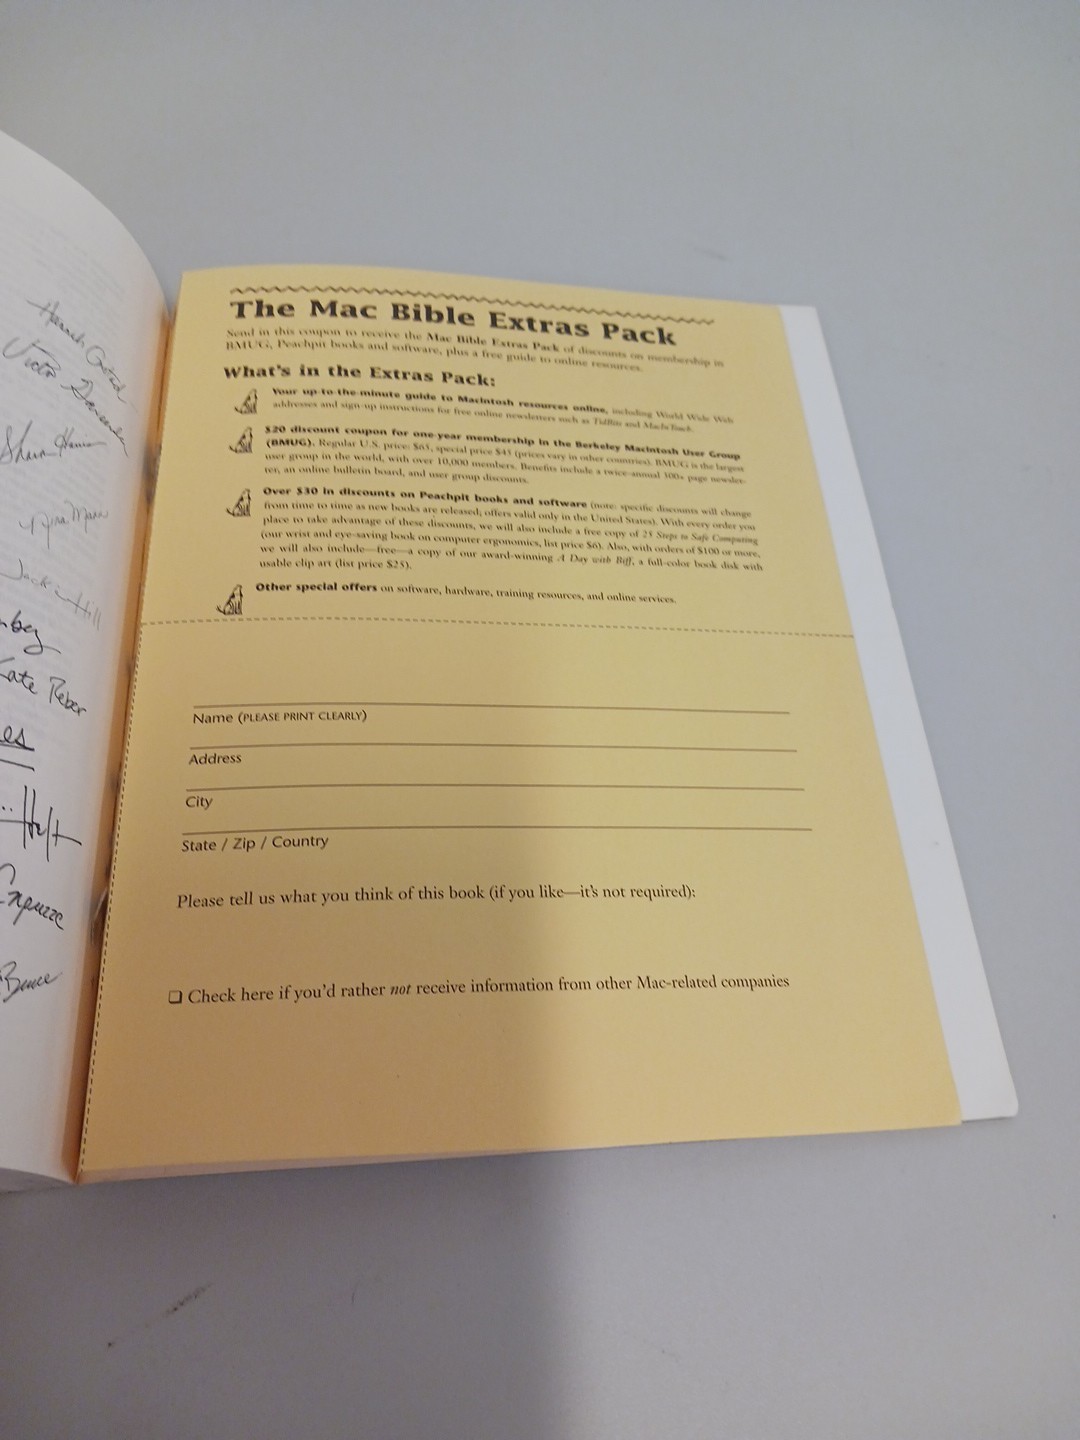 Sharon
Nina Mann
Jack Hill
Kate Reber
es
Bruce
The Mac Bible Extras Pack
Send in this coupon to receive the Mac Bible Extras Pack of discounts on membership in
BMUG, Peachpit books and software, plus a free guide to online resources.
What's in the Extras Pack:
Your up-to-the-minute guide to Macintosh resources online, including World Wide Web
addresses and sign-up instructions for free online newsletters such as TidBits and
$20 discount coupon for one-year membership in the Berkeley Macintosh User Group
(BMUG). Regular U.S. price: $65, special price $45 (prices vary in other countries). BMUG is the largest
user group in the world, with over 10,000 members. Benefits include a twice-annual 300+ page newslet-
ter, an online bulletin board, and user group discounts.
Over $30 in discounts on Peachpit books and software (note: specific discounts will change
from time to time as new books are released; offers valid only in the United States). With every order you
place to take advantage of these discounts, we will also include a free copy of 25 Steps to Safe Computing
(our wrist and eye-saving book on computer ergonomics, list price $6). Also, with orders of $100 or more,
we will also include—free—a copy of our award-winning A Day with Biff, a full-color book disk with
usable clip art (list price $25).
Other special offers on software, hardware, training resources, and online services.
Name (PLEASE PRINT CLEARLY)
Address
City
State / Zip / Country
Please tell us what you think of this book (if you like—it's not required):
❏ Check here if you'd rather not receive information from other Mac-related companies